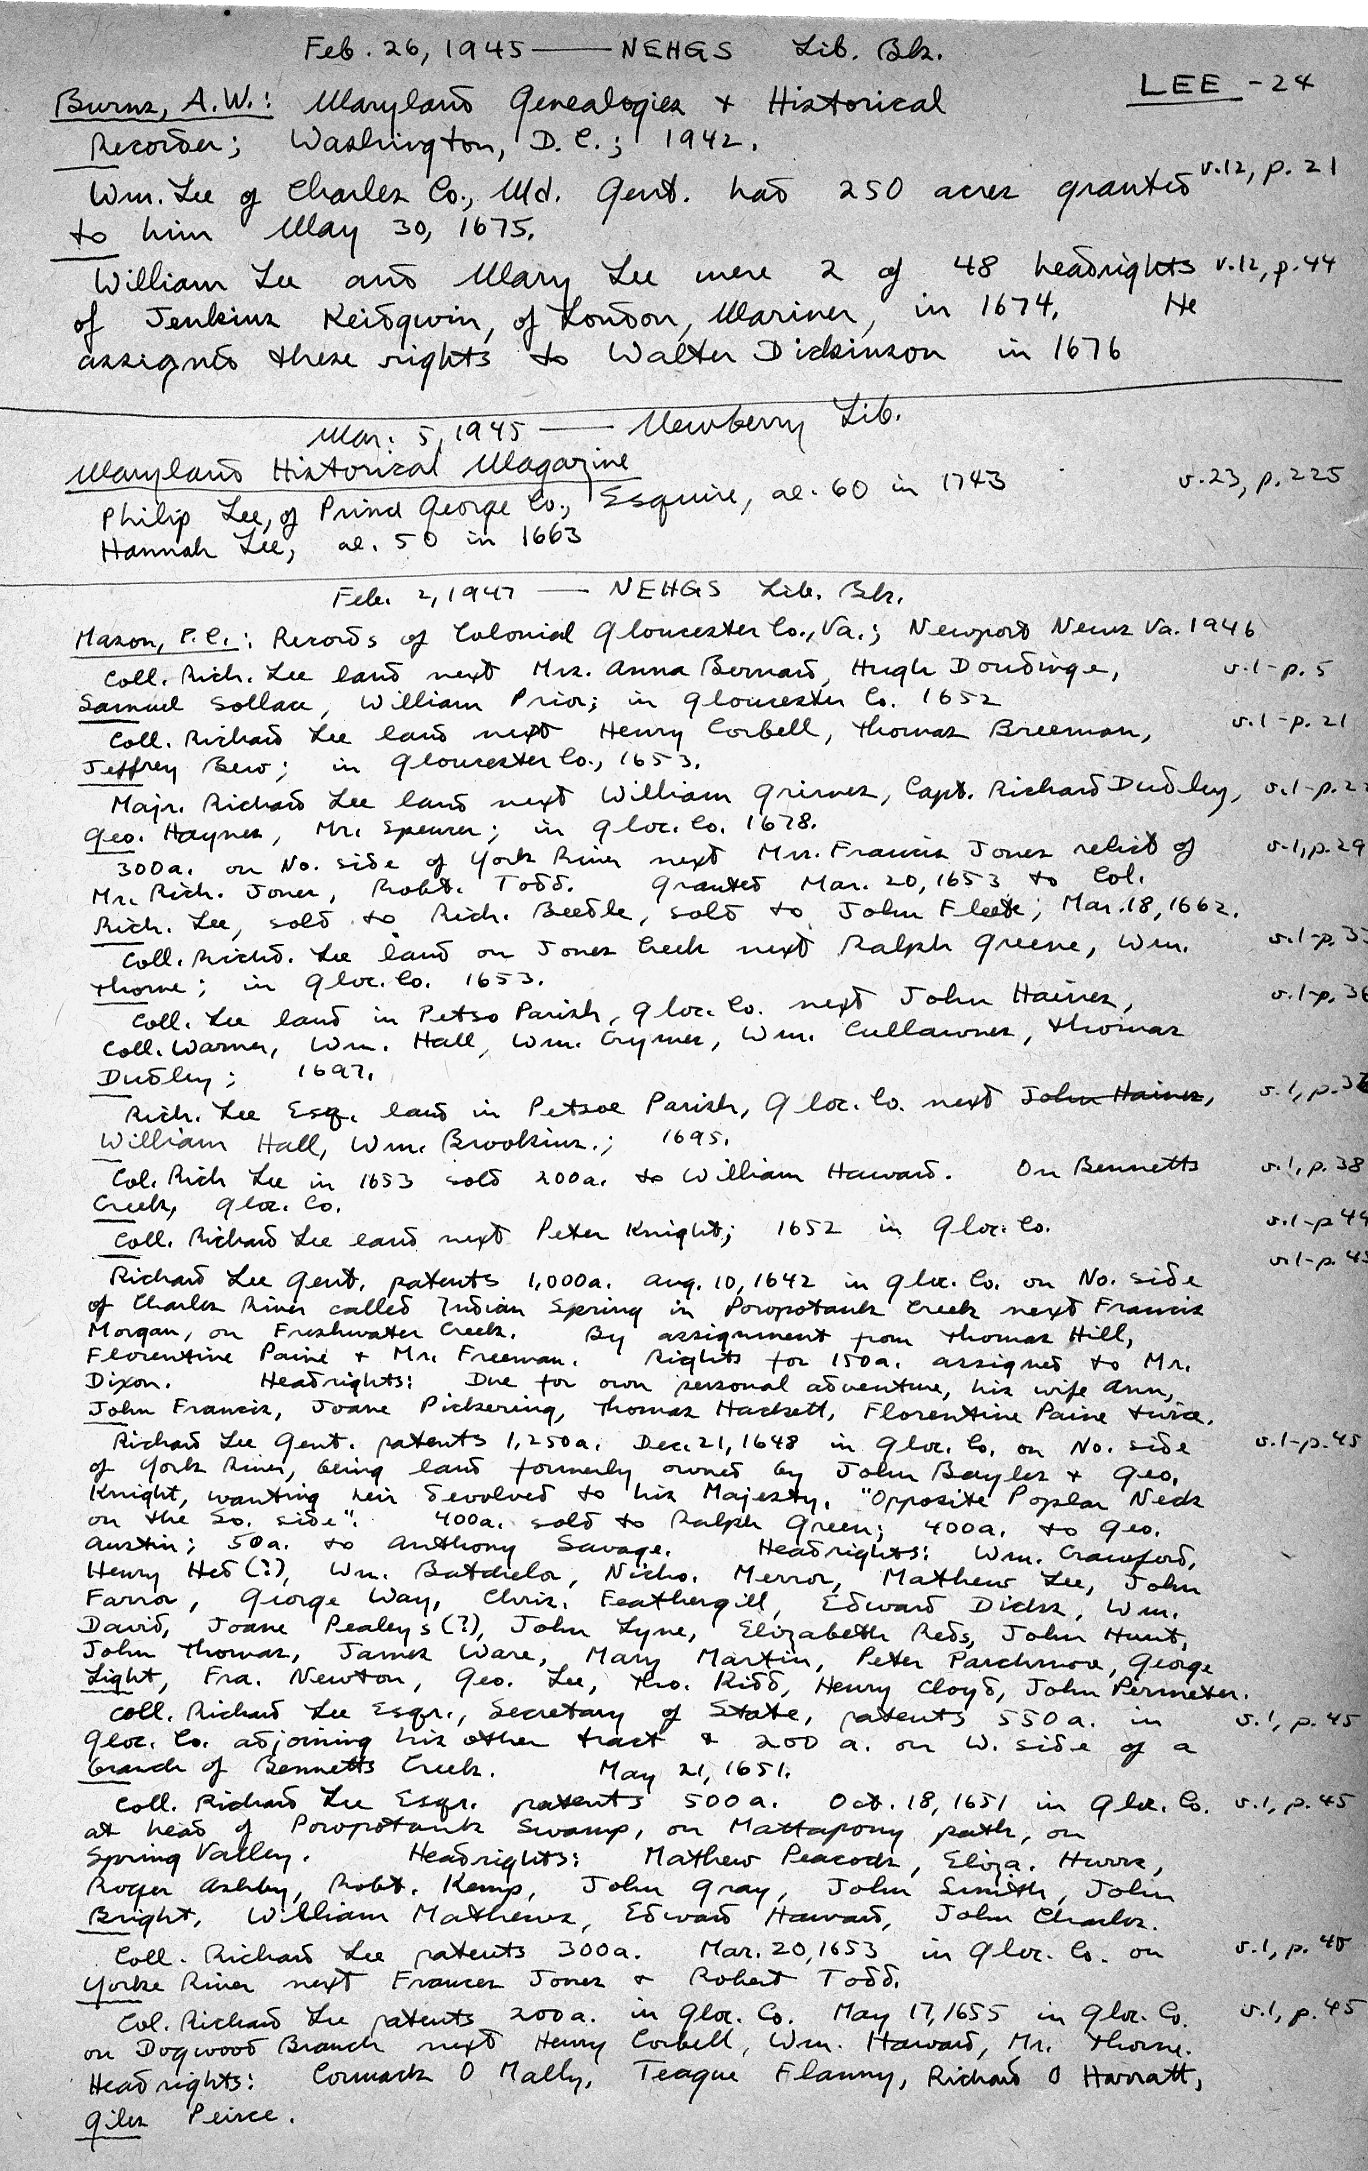 Feb. 26, 1945 — NEHGS Lib. Bk.
LEE - 24
Burns, A.W.: Maryland Genealogies & Historical
Recorder; Washington, D.C.; 1942.
Wm. Lee of Charles Co., Md. Gent. had 250 acres granted v.12, p. 21
to him May 30, 1675.
William Lee and Mary Lee were 2 of 48 headrights v.12, p. 44
of Jenkins Keidgwin, of London, Mariner, in 1674. He
assigned these rights to Walter Dickinson in 1676
Mar. 5, 1945 — Newberry Lib.
Maryland Historical Magazine
Philip Lee, of Prince George Co., Esquire, ae. 60 in 1743 v.23, p.225
Hannah Lee, ae. 50 in 1663
Feb. 2, 1947 — NEHGS Lib. Bk.
Mason, P.C.: Records of Colonial Gloucester Co., Va.; Newport News Va. 1946
Coll. Rich. Lee land next Mrs. Anna Bernard, Hugh Doudinge, v.1-p. 5
Samuel Sollace, William Prior; in Gloucester Co. 1652
Coll. Richard Lee land next Henry Corbell, Thomas Breeman, v.1-p. 21
Jeffrey Bew; in Gloucester Co., 1653.
Majr. Richard Lee land next William Grimes, Capt. Richard Dudley, v.1-p.2
Geo. Haynes, Mr. Spencer; in Gloc. Co. 1678.
300a. on No. side of York River next Mrs. Francis Jones relict of v.1, p.29
Mr. Rich. Jones, Robt. Todd. Granted Mar. 20, 1653 to Col.
Rich. Lee, sold to Rich. Beedle, sold to John Fleete; Mar. 18, 1662.
Coll. Richd. Lee land on Jones Creek next Ralph Greene, Wm. v.1-p.3
Thorne; in Gloc. Co. 1653.
Coll. Lee land in Petso Parish, Gloc. Co. next John Haines, v.1-p. 36
Coll. Warner, Wm. Hall, Wm. Crymes, Wm. Cullawnes, Thomas
Dudley; 1697.
Rich. Lee Esq. land in Petsoe Parish, Gloc. Co. next John Haines, v.1, p.3
William Hall, Wm. Brookins.; 1695.
Col. Rich Lee in 1653 sold 200a. to William Haward. On Bennetts v.1, p.38
Creek, Gloc. Co.
Coll. Richard Lee land next Peter Knight; 1652 in Gloc. Co. v.1-p 44
Richard Lee Gent. patents 1,000a. Aug. 10, 1642 in Gloc. Co. on No. side v.1-p. 45
of Charles River called Indian Spring in Poropotank Creek next Francis
Morgan, on Freshwater Creek. By assignment from Thomas Hill,
Florentine Paine & Mr. Freeman. Rights for 150a. assigned to Mr.
Dixon. Headrights: Due for own personal adventure, his wife Ann,
John Francis, Joane Pickering, Thomas Hackett, Florentine Paine twice.
Richard Lee Gent. patents 1,250a. Dec. 21, 1648 in Gloc. Co. on No. side v.1-p.45
of York River, being land formerly owned by John Bayles & Geo.
Knight, wanting heir devolved to his Majesty. "Opposite Poplar Neck
on the So. side". 400a. sold to Ralph Green; 400a. to Geo.
Austin; 50a. to Anthony Savage. Headrights: Wm. Crawford,
Henry Hed(?), Wm. Batchelor, Nicho. Merror, Mathew Lee, John
Farror, George Way, Chris. Feathergill, Edward Dicks, Wm.
David, Joane Pealeys(?), John Lyne, Elizabeth Reds, John Hunt,
John Thomas, James Ware, Mary Martin, Peter Parchmore, George
Light, Fra. Newton, Geo. Lee, Tho. Kidd, Henry Cloyd, John Permeter.
Coll. Richard Lee Esqr., Secretary of State, patents 550a. in v.1, p.45
Gloc. Co. adjoining his other tract & 200 a. on W. side of a
branch of Bennetts Creek. May 21, 1651.
Coll. Richard Lee Esqr. patents 500a. Oct. 18, 1651 in Gloc. Co. v.1, p.45
at head of Poropotank Swamp, on Mattapony path, on
Spring Valley. Headrights: Mathew Peacock, Eliza.
Roger Ashby, Robt. Kemp, John Gray, John Smith, John
Bright, William Mathews, Edward Haward, John Charles.
Coll. Richard Lee patents 300a. Mar. 20, 1653 in Gloc. Co. on v.1, p.45
Yorke River next Frances Jones & Robert Todd.
Col. Richard Lee patents 200a. in Gloc. Co. May 17, 1655 in Gloc. Co. v.1, p.45
on Dogwood Branch next Henry Corbell, Wm. Haward, Mr. Thorne.
Headrights: Cormack O Mally, Teague Flanny, Richard O Harratt,
Giles Peirce.